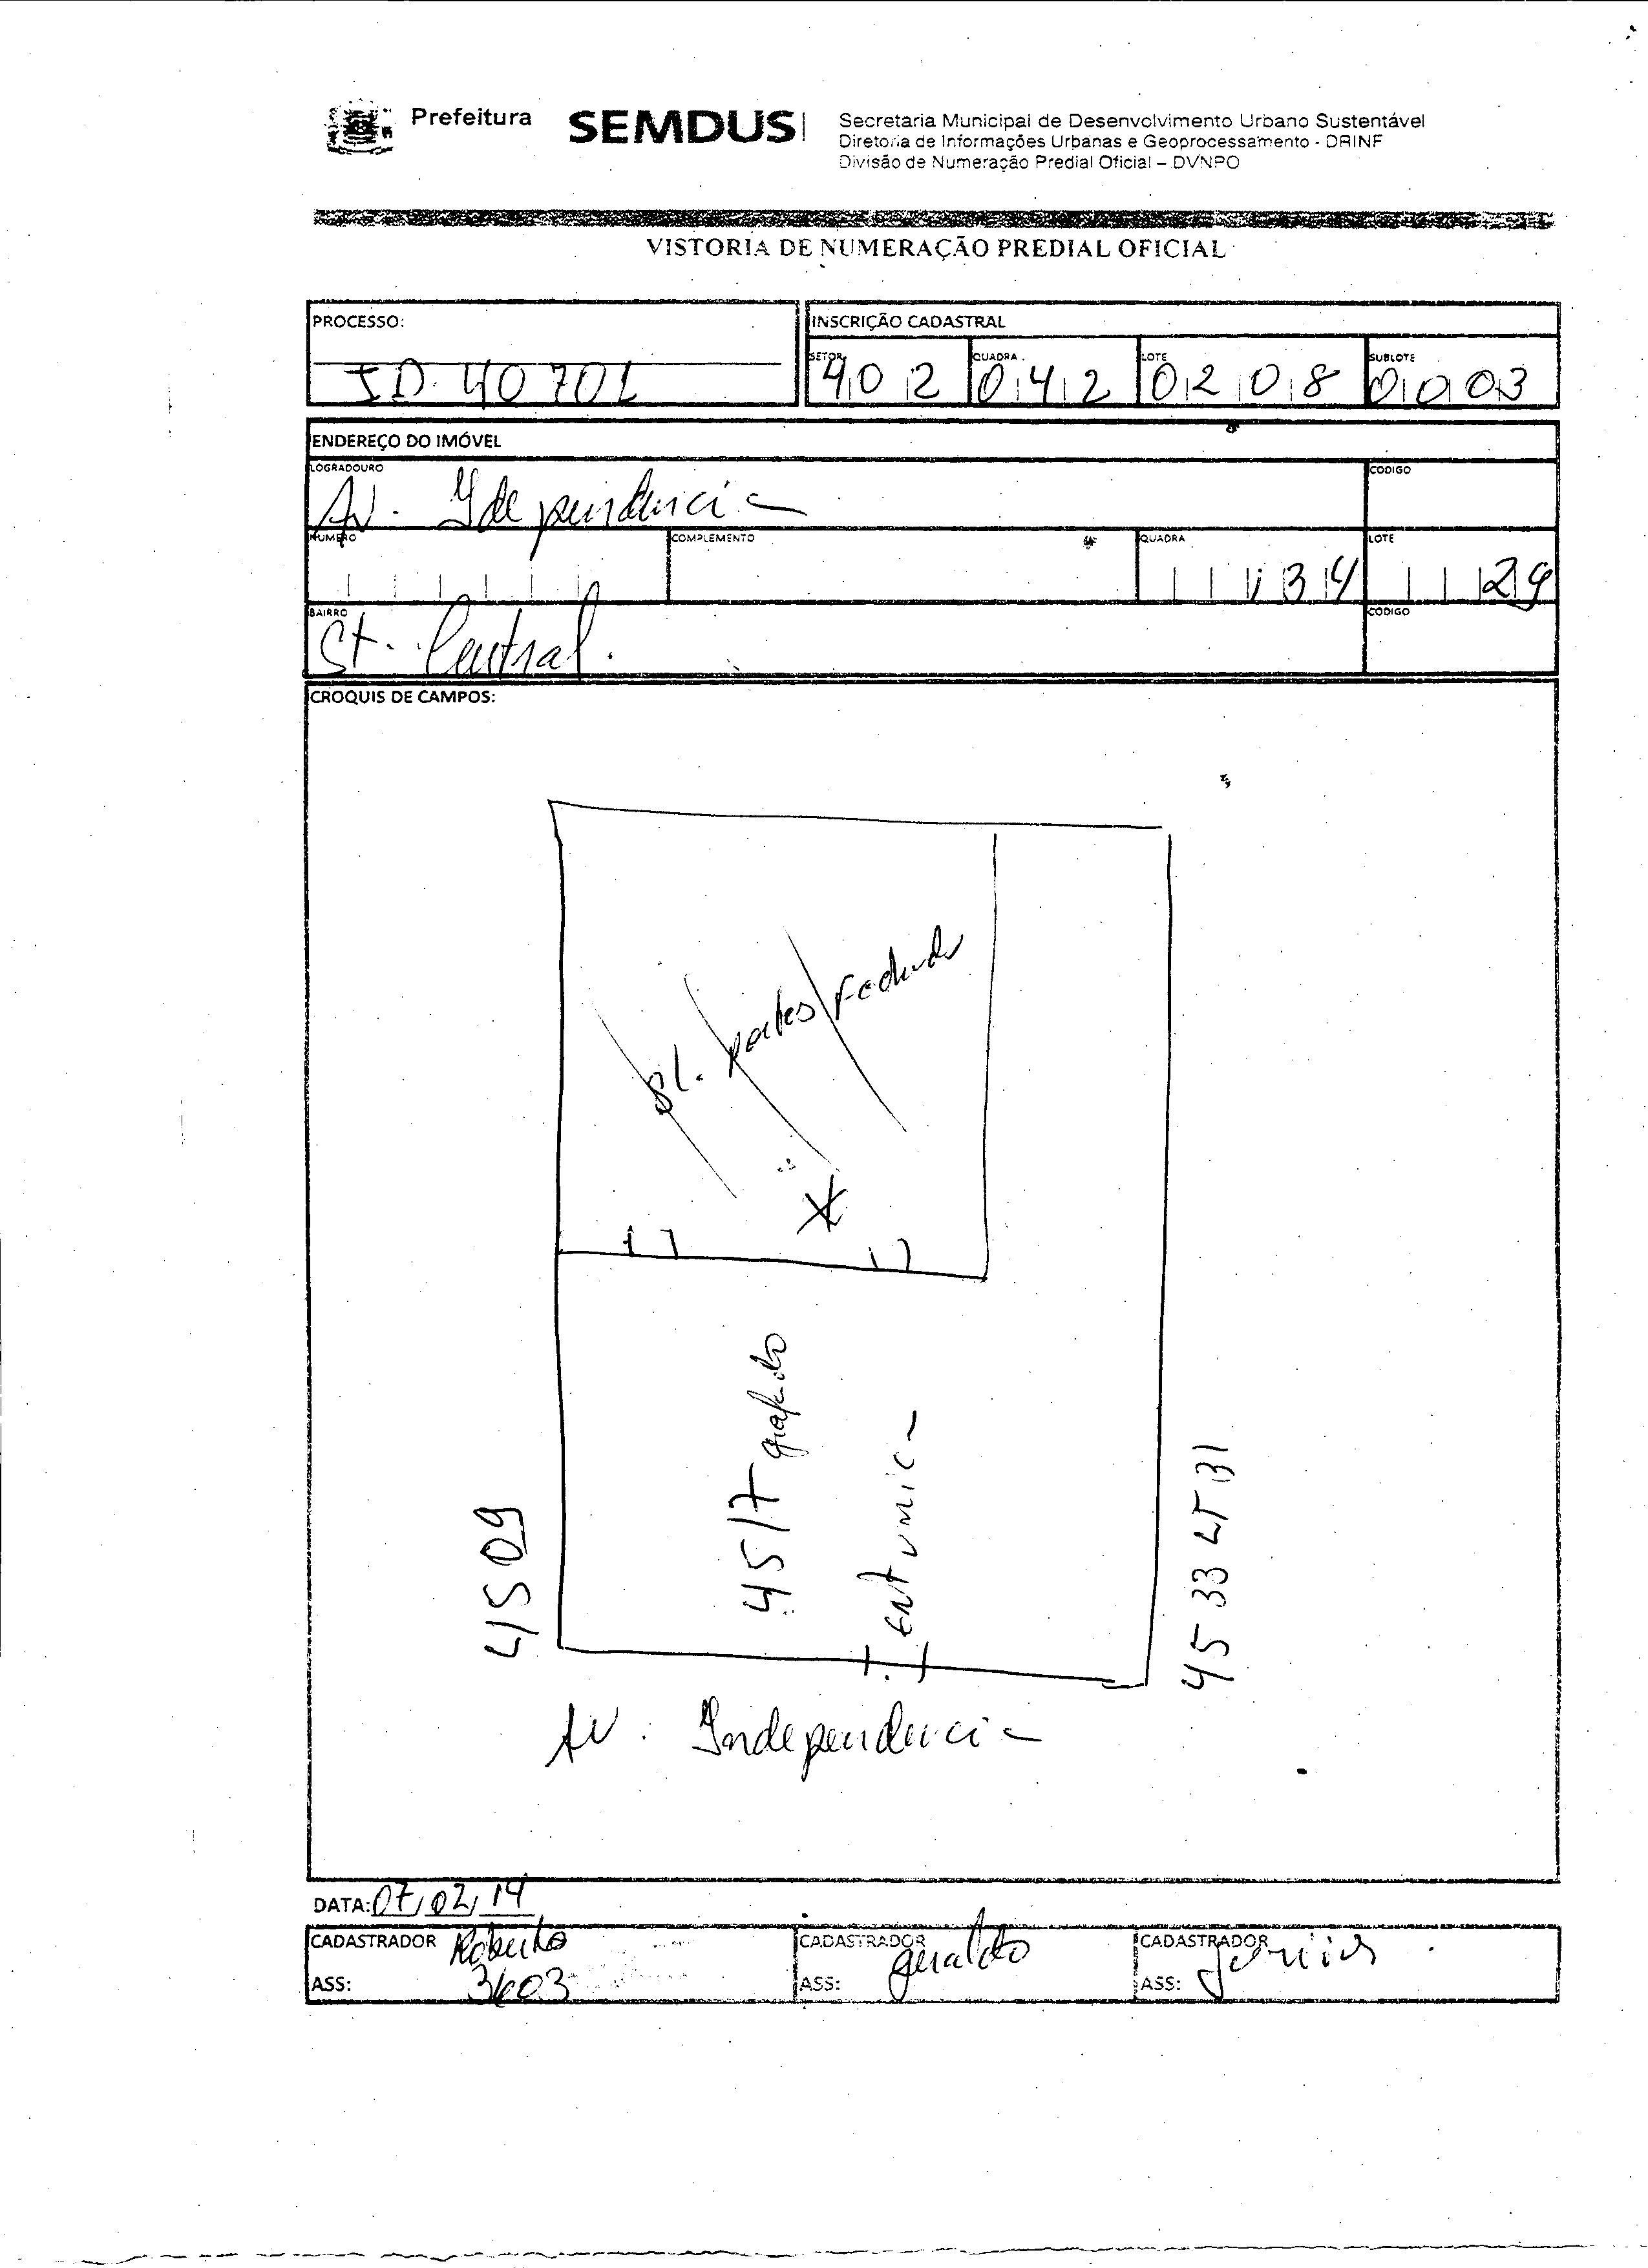 Prefeitura SEMDUS
Secretaria Municipal de Desenvolvimento Urbano Sustentável
Diretoria de Informações Urbanas e Geoprocessamento - DRINF
Divisão de Numeração Predial Oficial – DVNPO
VISTORIA DE NUMERAÇÃO PREDIAL OFICIAL
PROCESSO:
ID 40701
INSCRIÇÃO CADASTRAL
SETOR QUADRA LOTE SUBLOTE
402 042 0208 0003
ENDEREÇO DO IMÓVEL
LOGRADOURO CODIGO
Av. Idependencia
NUMERO COMPLEMENTO QUADRA LOTE
134 29
BAIRRO CODIGO
St. Central.
CROQUIS DE CAMPOS:
portes
4517 grafado
ent unica
4509
4533 LT 31
Av. Independencia
DATA: 07/02/14
CADASTRADOR Roberto CADASTRADOR geraldo CADASTRADOR
ASS: 3603 ASS: ASS: